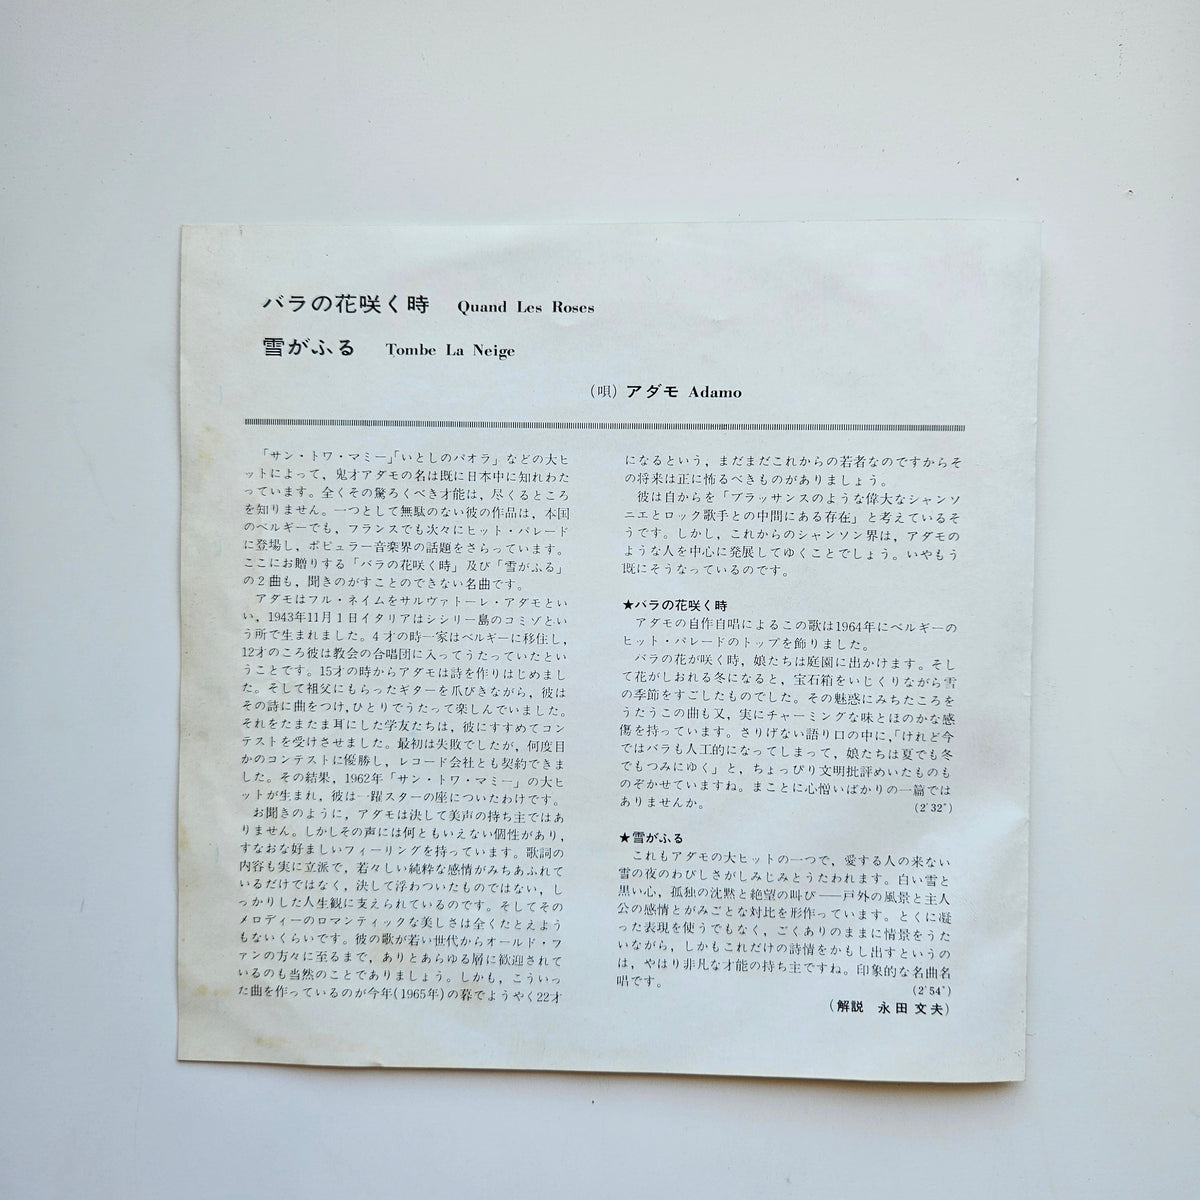 バラの花咲く時 Quand Les Roses
雪がふる Tombe La Neige
(唄) アダモ Adamo
「サン・トワ・マミー」「いとしのパオラ」などの大ヒ
ットによって，鬼才アダモの名は既に日本中に知れわた
っています。全くその驚ろくべき才能は，尽くるところ
を知りません。一つとして無駄のない彼の作品は，本国
のベルギーでも，フランスでも次々にヒット・パレード
に登場し，ポピュラー音楽界の話題をさらっています。
ここにお贈りする「バラの花咲く時」及び「雪がふる」
の2曲も，聞きのがすことのできない名曲です。
アダモはフル・ネイムをサルヴァトーレ・アダモとい
い，1943年11月1日イタリアはシシリー島のコミゾとい
う所で生まれました。4才の時一家はベルギーに移住し，
12才のころ彼は教会の合唱団に入ってうたっていたとい
うことです。15才の時からアダモは詩を作りはじめまし
た。そして祖父にもらったギターを爪びきながら，彼は
その詩に曲をつけ，ひとりでうたって楽しんでいました。
それをたまたま耳にした学友たちは，彼にすすめてコン
テストを受けさせました。最初は失敗でしたが，何度目
かのコンテストに優勝し，レコード会社とも契約できま
した。その結果，1962年「サン・トワ・マミー」の大ヒ
ットが生まれ，彼は一躍スターの座についたわけです。
お聞きのように，アダモは決して美声の持ち主ではあ
りません。しかしその声には何ともいえない個性があり，
すなおな好ましいフィーリングを持っています。歌詞の
内容も実に立派で，若々しい純粋な感情がみちあふれて
いるだけではなく，決して浮わついたものではない，し
っかりした人生観に支えられているのです。そしてその
メロディーのロマンティックな美しさは全くたとえよう
もないくらいです。彼の歌が若い世代からオールド・フ
ァンの方々に至るまで，ありとあらゆる層に歓迎されて
いるのも当然のことでありましょう。しかも，こういっ
た曲を作っているのが今年(1965年)の暮でようやく22才
になるという，まだまだこれからの若者なのですからそ
の将来は正に怖るべきものがありましょう。
彼は自からを「ブラッサンスのような偉大なシャンソ
ニエとロック歌手との中間にある存在」と考えているそ
うです。しかし，これからのシャンソン界は，アダモの
ような人を中心に発展してゆくことでしょう。いやもう
既にそうなっているのです。
★バラの花咲く時
アダモの自作自唱によるこの歌は1964年にベルギーの
ヒット・パレードのトップを飾りました。
バラの花が咲く時，娘たちは庭園に出かけます。そし
て花がしおれる冬になると，宝石箱をいじくりながら雪
の季節をすごしたものでした。その魅惑にみちたころを
うたうこの曲も又，実にチャーミングな味とほのかな感
傷を持っています。さりげない語り口の中に，「けれど今
ではバラも人工的になってしまって，娘たちは夏でも冬
でもつみにゆく」と，ちょっぴり文明批評めいたものも
のぞかせていますね。まことに心憎いばかりの一篇では
ありませんか。 (2′32″)
★雪がふる
これもアダモの大ヒットの一つで，愛する人の来ない
雪の夜のわびしさがしみじみとうたわれます。白い雪と
黒い心，孤独の沈黙と絶望の叫び——戸外の風景と主人
公の感情とがみごとな対比を形作っています。とくに凝
った表現を使うでもなく，ごくありのままに情景をうた
いながら，しかもこれだけの詩情をかもし出すというの
は，やはり非凡な才能の持ち主ですね。印象的な名曲名
唱です。 (2′54″)
(解説 永田文夫)